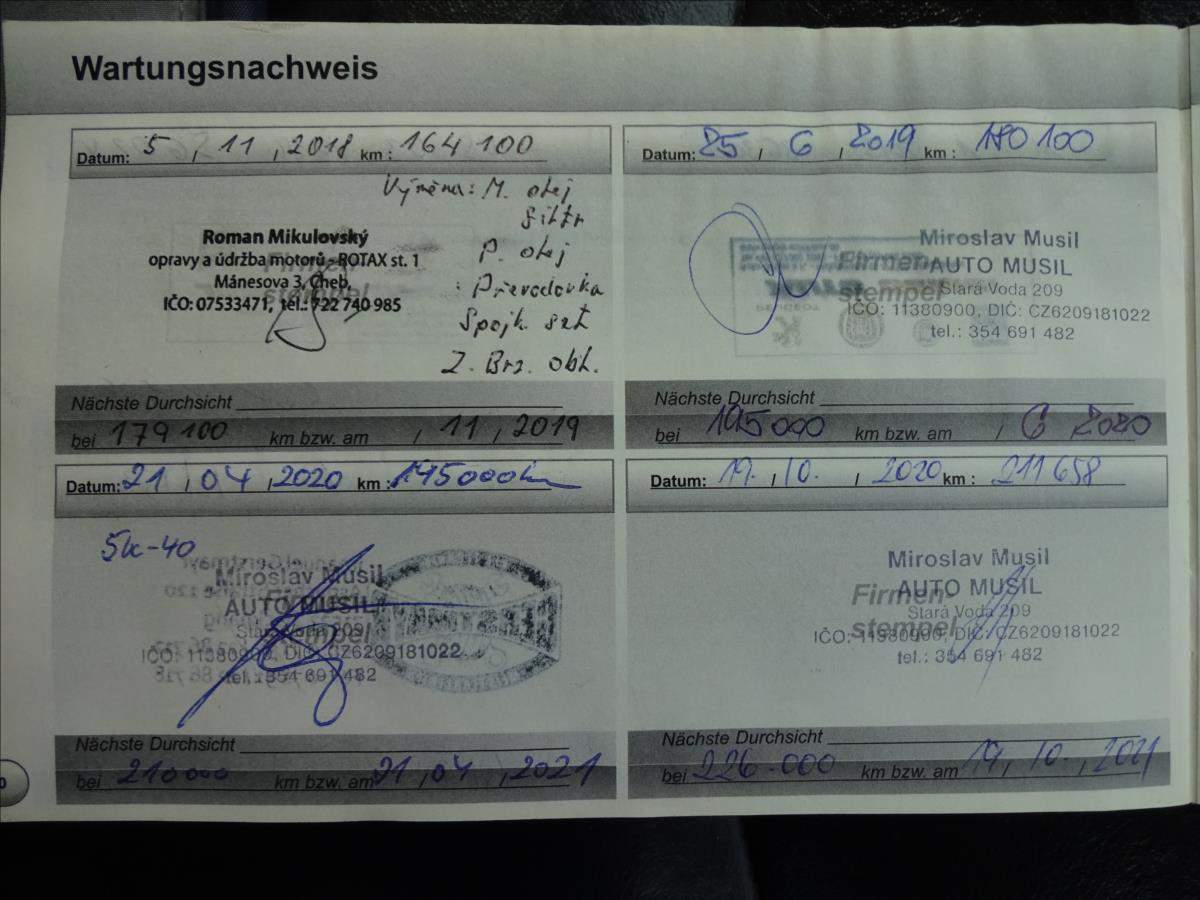 Wartungsnachweis
Datum: 5 , 11 , 2018 km : 164 100
Výměna: M. olej
filtr
P. olej
Převodovka
Spojk. set
Z. Brz. obl.
Roman Mikulovský
opravy a údržba motorů - ROTAX st. 1
Mánesova 3, Cheb,
IČO: 07533471, tel.: 722 740 985
Firmen-
stempel
Nächste Durchsicht
bei 179 100 km bzw. am , 11 , 2019
Datum: 25 , 6 , 2019 km : 180 100
Miroslav Musil
AUTO MUSIL
Stará Voda 209
IČO: 11380900, DIČ: CZ6209181022
tel.: 354 691 482
Firmen-
stempel
Nächste Durchsicht
bei 195000 km bzw. am , 6 , 2020
Datum: 21 , 04 , 2020 km : 195000km
5w-40
Miroslav Musil
AUTO MUSIL
Stará Voda 209
IČO: 11380900, DIČ: CZ6209181022
tel.: 354 691 482
Firmen-
stempel
Nächste Durchsicht
bei 210000 km bzw. am 21 , 04 , 2021
Datum: 19. , 10. , 2020 km : 211 658
Miroslav Musil
AUTO MUSIL
Stará Voda 209
IČO: 11380900, DIČ: CZ6209181022
tel.: 354 691 482
Firmen-
stempel
Nächste Durchsicht
bei 226.000 km bzw. am 19, 10. , 2021